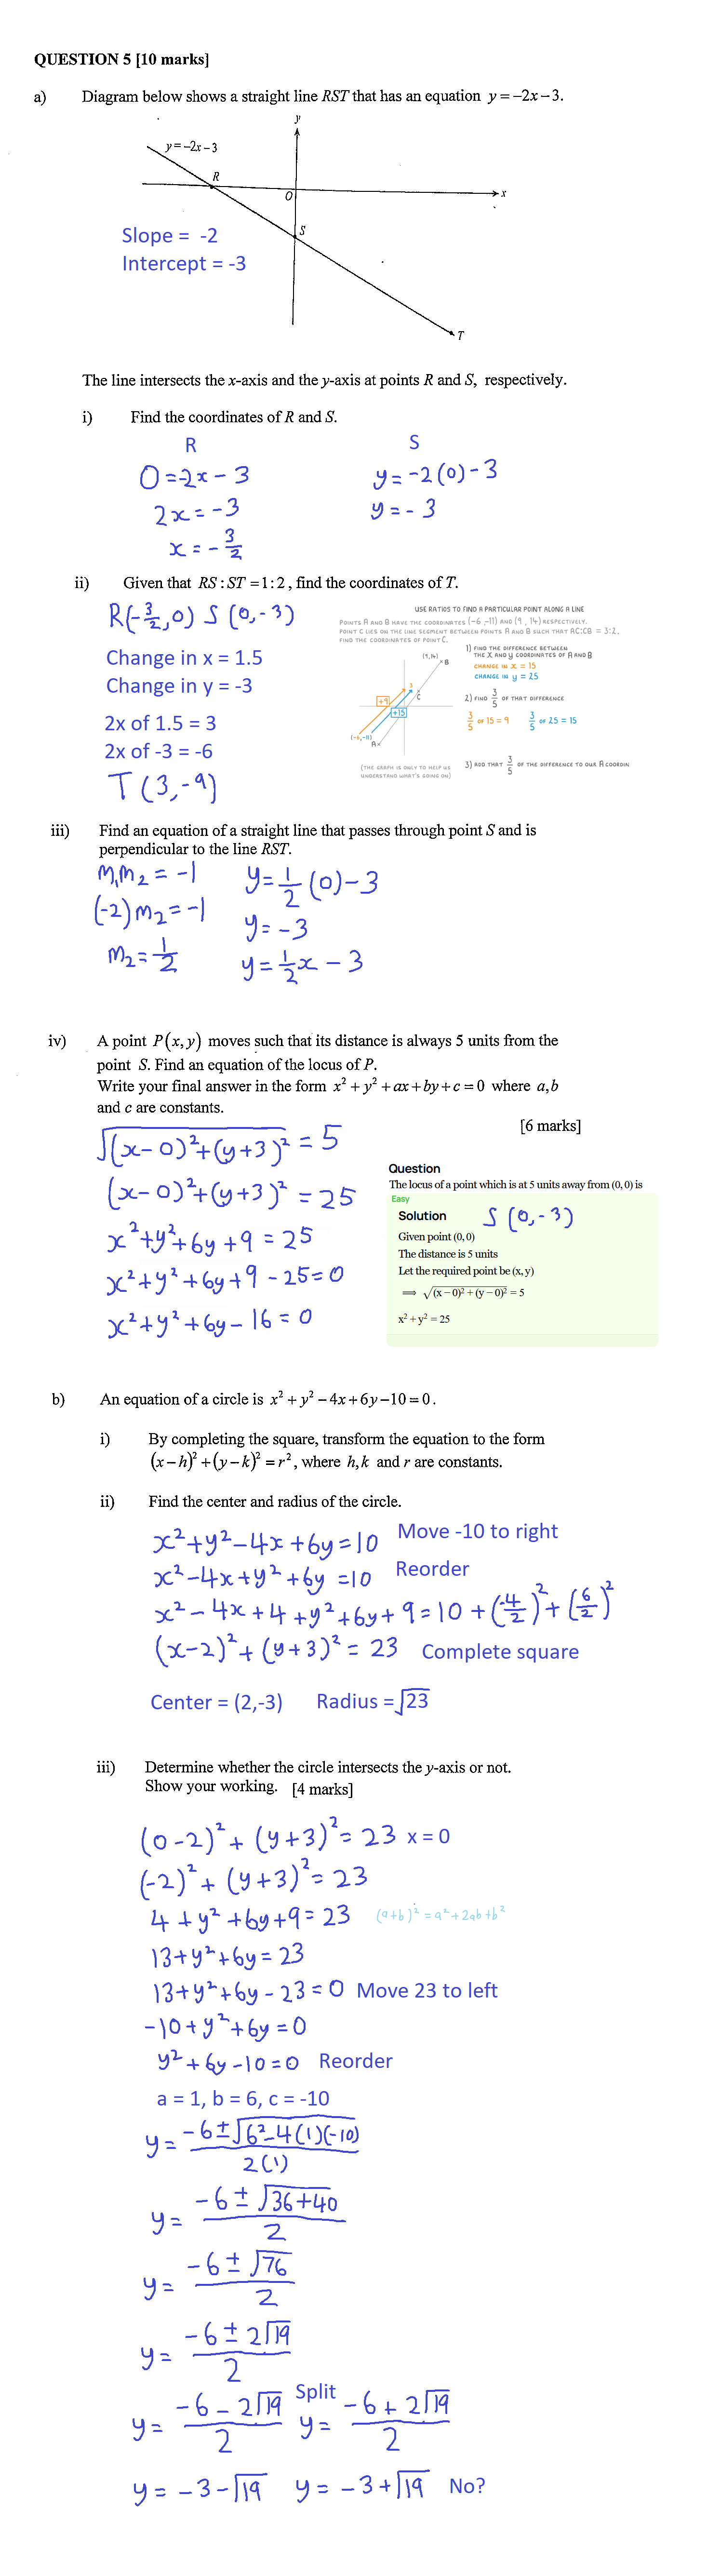 QUESTION 5 [10 marks]
a) Diagram below shows a straight line RST that has an equation y = –2x – 3.
y
y = –2x – 3
R
O
x
S
Slope = -2
Intercept = -3
T
The line intersects the x-axis and the y-axis at points R and S, respectively.
i) Find the coordinates of R and S.
R
S
0 = -2x - 3
y = -2(0) - 3
2x = -3
y = -3
x = -3/2
ii) Given that RS : ST = 1 : 2, find the coordinates of T.
R(-3/2, 0) S(0, -3)
Change in x = 1.5
Change in y = -3
2x of 1.5 = 3
2x of -3 = -6
T(3, -9)
USE RATIOS TO FIND A PARTICULAR POINT ALONG A LINE
POINTS A AND B HAVE THE COORDINATES (-6, -11) AND (9, 14) RESPECTIVELY.
POINT C LIES ON THE LINE SEGMENT BETWEEN POINTS A AND B SUCH THAT AC:CB = 3:2.
FIND THE COORDINATES OF POINT C.
(9, 14)
B
3
C
+9
+15
(-6, -11)
A
(THE GRAPH IS ONLY TO HELP US
UNDERSTAND WHAT'S GOING ON)
1) FIND THE DIFFERENCE BETWEEN
THE X AND y COORDINATES OF A AND B
CHANGE IN X = 15
CHANGE IN y = 25
2) FIND 3/5 OF THAT DIFFERENCE
3/5 OF 15 = 9 3/5 OF 25 = 15
3) ADD THAT 3/5 OF THE DIFFERENCE TO OUR A COORDIN
iii) Find an equation of a straight line that passes through point S and is
perpendicular to the line RST.
m₁m₂ = -1
y = 1/2 (0) - 3
(-2)m₂ = -1
y = -3
m₂ = 1/2
y = 1/2 x - 3
iv) A point P(x, y) moves such that its distance is always 5 units from the
point S. Find an equation of the locus of P.
Write your final answer in the form x² + y² + ax + by + c = 0 where a, b
and c are constants.
[6 marks]
√(x-0)²+(y+3)² = 5
(x-0)²+(y+3)² = 25
x²+y²+6y+9 = 25
x²+y²+6y+9-25=0
x²+y²+6y-16=0
Question
The locus of a point which is at 5 units away from (0, 0) is
Easy
Solution
S(0, -3)
Given point (0, 0)
The distance is 5 units
Let the required point be (x, y)
⟹ √(x – 0)² + (y – 0)² = 5
x² + y² = 25
b) An equation of a circle is x² + y² – 4x + 6y – 10 = 0.
i) By completing the square, transform the equation to the form
(x – h)² + (y – k)² = r², where h, k and r are constants.
ii) Find the center and radius of the circle.
x²+y²-4x+6y=10 Move -10 to right
x²-4x+y²+6y=10 Reorder
x²-4x+4+y²+6y+9=10+(-4/2)²+(6/2)²
(x-2)²+(y+3)²=23 Complete square
Center = (2,-3) Radius = √23
iii) Determine whether the circle intersects the y-axis or not.
Show your working. [4 marks]
(0-2)²+(y+3)²=23 x = 0
(-2)²+(y+3)²=23
4+y²+6y+9=23 (a+b)²=a²+2ab+b²
13+y²+6y=23
13+y²+6y-23=0 Move 23 to left
-10+y²+6y=0
y²+6y-10=0 Reorder
a = 1, b = 6, c = -10
y = -6±√6²-4(1)(-10) / 2(1)
y = -6±√36+40 / 2
y = -6±√76 / 2
y = -6±2√19 / 2
y = -6-2√19 / 2 Split y = -6+2√19 / 2
y = -3-√19 y = -3+√19 No?